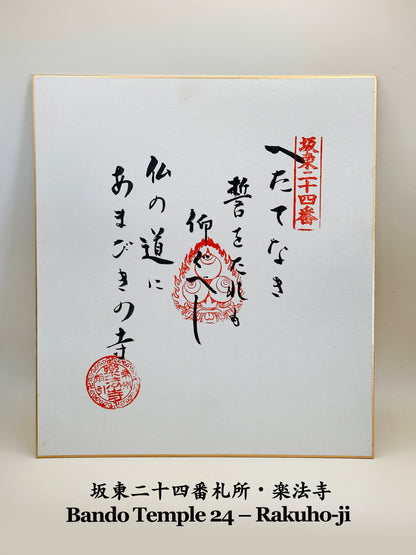 坂東二十四番
へたてなき
誓をたれも
仰くべし
仏の道に
あまびきの寺
楽法寺
坂東二十四番札所・楽法寺
Bando Temple 24 – Rakuho-ji